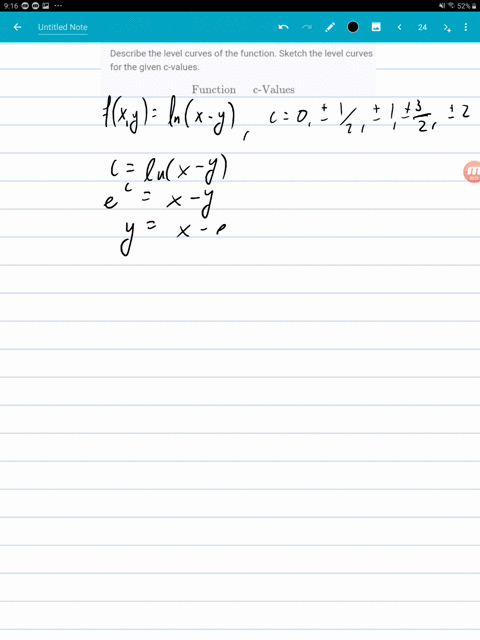 9:16 52%
Untitled Note 24
Describe the level curves of the function. Sketch the level curves
for the given c-values.
Function c-Values
f(x,y) = ln(x-y), c=0, ±1/2, ±1, ±3/2, ±2
c = ln(x-y)
e^c = x-y
y = x-e